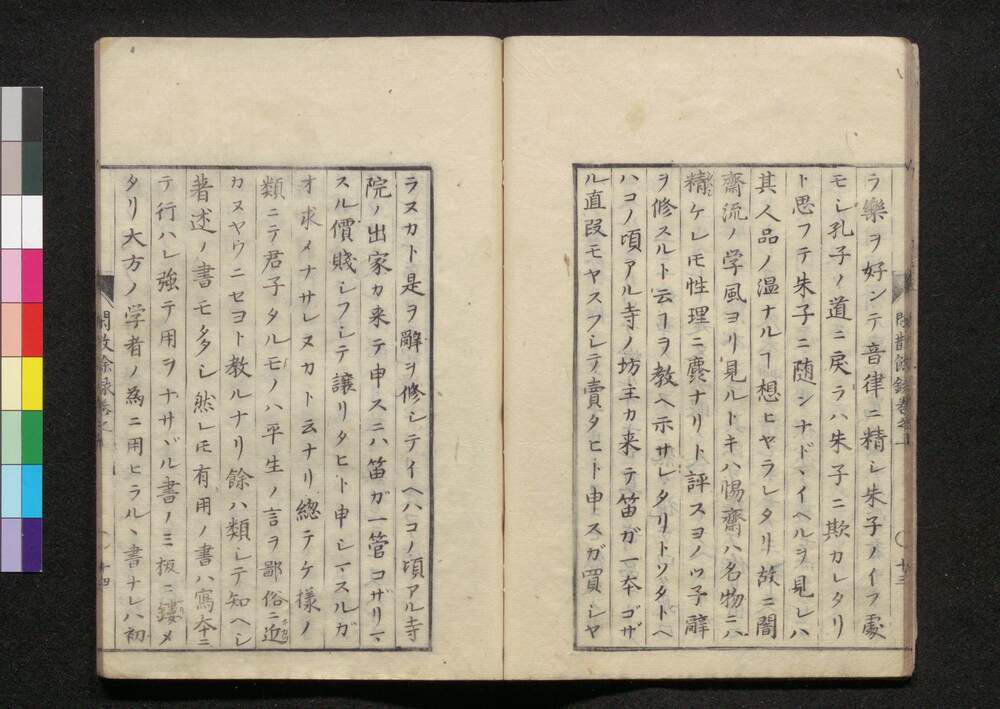 ラ樂ヲ好ンテ音律ニ精シ朱子ノイフ處
モシ孔子ノ道ニ戻ラハ朱子ニ欺カレタリ
ト思フテ朱子ニ随シナドヽイヘルヲ見レハ
其人品ノ温ナルヿ想ヒヤラレタリ故ニ闇
齋流ノ学風ヨリ見ルトキハ惕齋ハ名物ニハ
精ケレ𪜈性理ニ麁ナリト評スヨノツ子辭
ヲ修スルト云フヿヲ教ヘ示サレタリトソタトヘ
ハコノ頃アル寺ノ坊主カ来テ笛ガ一本ゴザ
ル直段モヤスフシテ賣タヒト申スガ買シヤ
ラヌカト是ヲ辭ヲ修シテイヘハコノ頃アル寺
院ノ出家カ来テ申スニハ笛ガ一管コザリマ
スル價賤シフシテ讓リタヒト申シマスルガ
オ求メナサレヌカト云ナリ總テケ様ノ
類ニテ君子タルモノハ平生ノ言ヲ鄙俗ニ近
カヌヤウニセヨト教ルナリ餘ハ類シテ知ヘシ
著述ノ書モ多シ然レ𪜈有用ノ書ハ寫本ニ
テ行ハレ強テ用ヲナサヾル書ノミ板ニ鏤メ
タリ大方ノ学者ノ為ニ用ヒラルヽ書ナレハ初
十三
十四